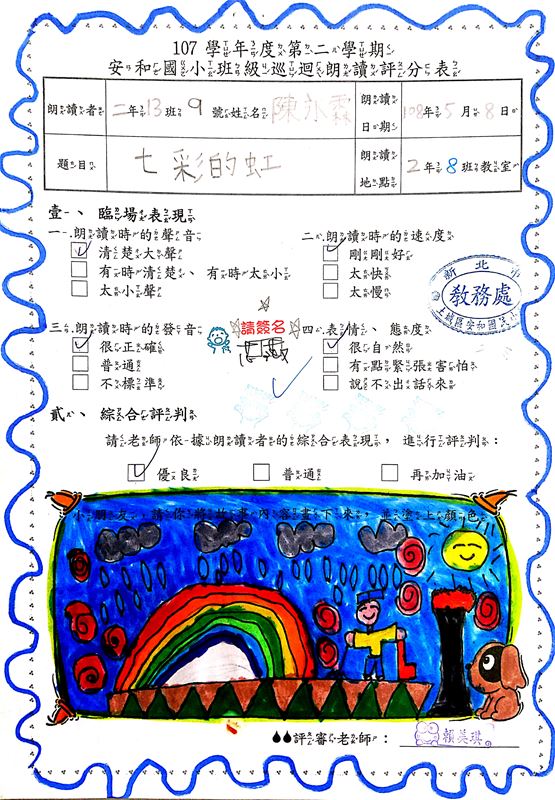 107 學年度第二學期
安和國小班級巡迴朗讀評分表
朗讀者 二年13班9號姓名 陳 霖 朗讀日期 108年5月8日
題目 七彩的虹 朗讀地點 2年8班教室
壹、臨場表現
一、朗讀時的聲音 二、朗讀時的速度
清楚大聲 剛剛好
有時清楚、有時太小 太快
太小聲 太慢
新北市
教務處
土城區安和國民小
三、朗讀時的發音 請簽名 四、表情、態度
很正確 很自然
普通 有點緊張害怕
不標準 說不出話來
貳、綜合評判
請老師依據朗讀者的綜合表現，進行評判：
優良 普通 再加油
小朋友，請你將故事內容畫下來，並塗上顏色。
評審老師： 賴美琪